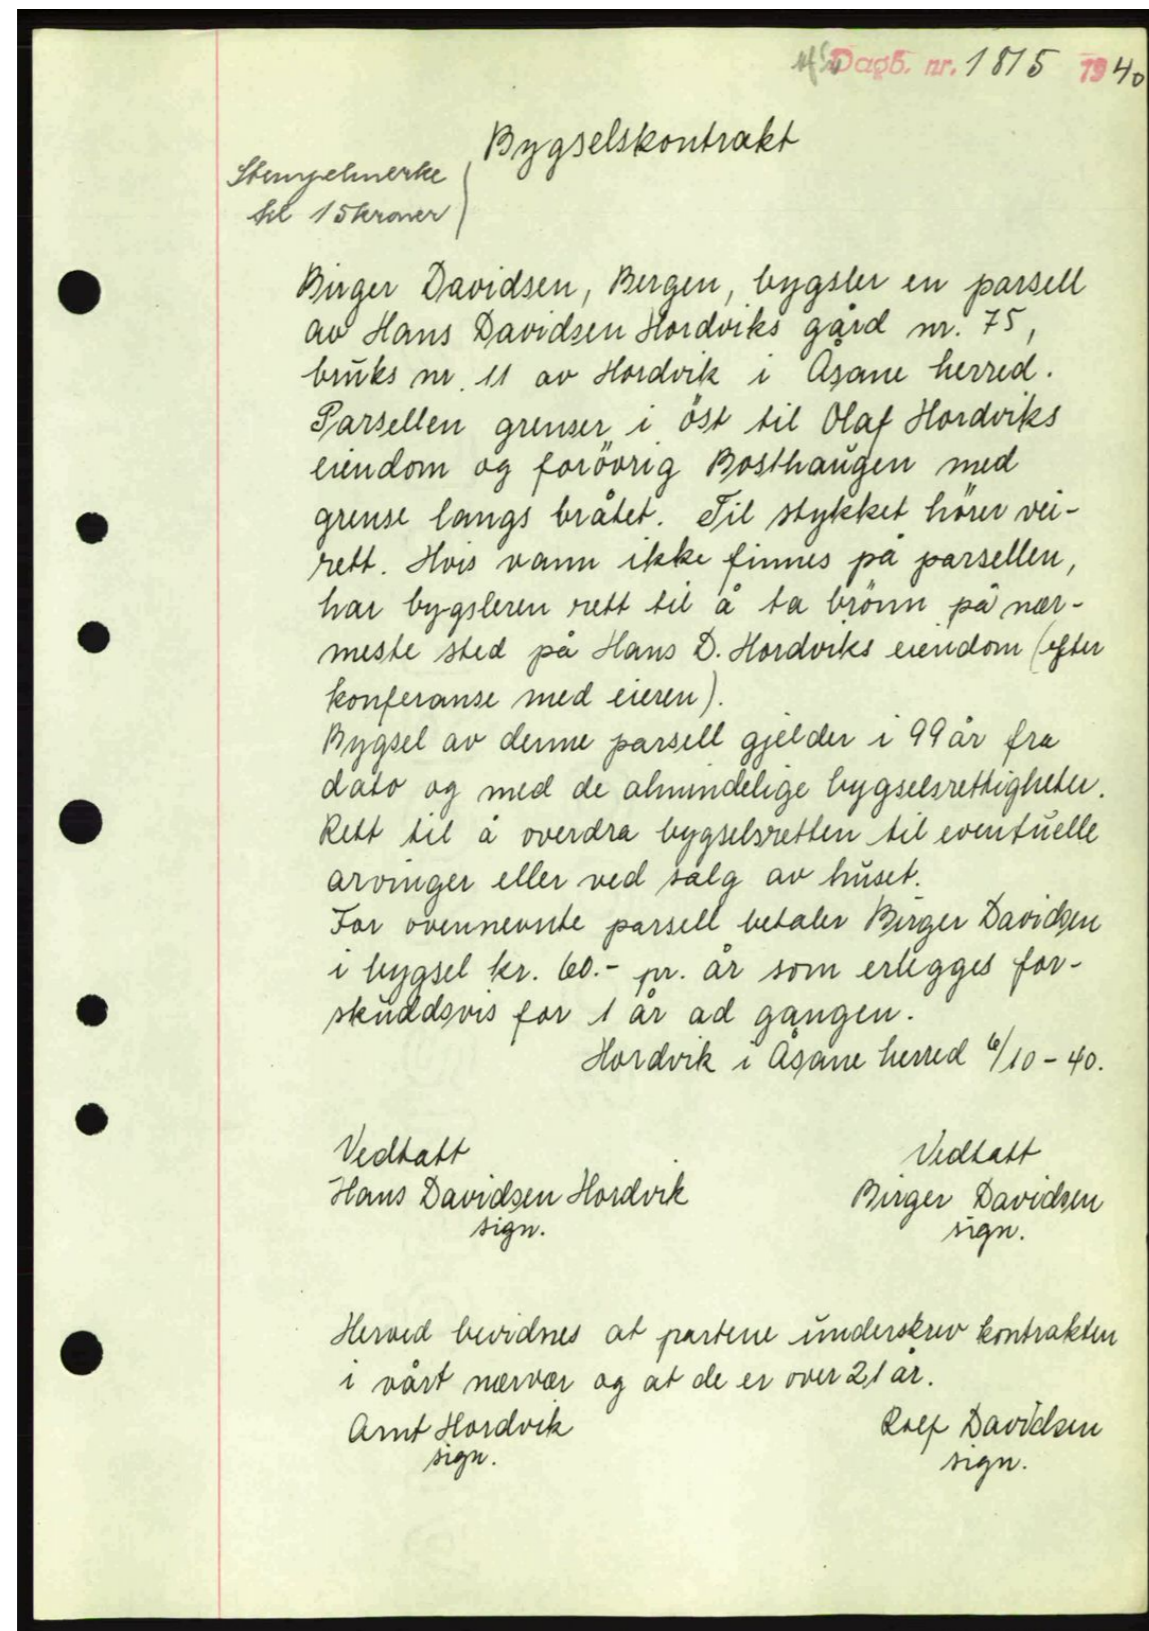 Dagb. nr. 1815 1940
Bygselskontrakt
Stempelmerke
kr 15 kroner
Birger Davidsen, Bergen, bygsler en parsell
av Hans Davidsen Hordviks gård nr. 75,
bruks nr. 11 av Hordvik i Åsane herred.
Parsellen grenser i öst til Olaf Hordviks
eiendom og forövrig Bosthaugen med
grense langs bråtet. Til stykket hörer vei-
rett. Hvis vann ikke finnes på parsellen,
har bygsleren rett til å ta brönn på nær-
meste sted på Hans D. Hordviks eiendom (efter
konferanse med eieren).
Bygsel av denne parsell gjelder i 99 år fra
dato og med de almindelige bygselsrettigheter.
Rett til å overdra bygselsretten til eventuelle
arvinger eller ved salg av huset.
For ovennevnte parsell betaler Birger Davidsen
i bygsel kr. 60.- pr. år som erlegges for-
skuddsvis for 1 år ad gangen.
Hordvik i Åsane herred 6/10 - 40.
Vedtatt Vedtatt
Hans Davidsen Hordvik Birger Davidsen
sign. sign.
Herved bevidnes at partene underskrev kontrakten
i vårt nærvær og at de er over 21 år.
Arnt Hordvik Rolf Davidsen
sign. sign.